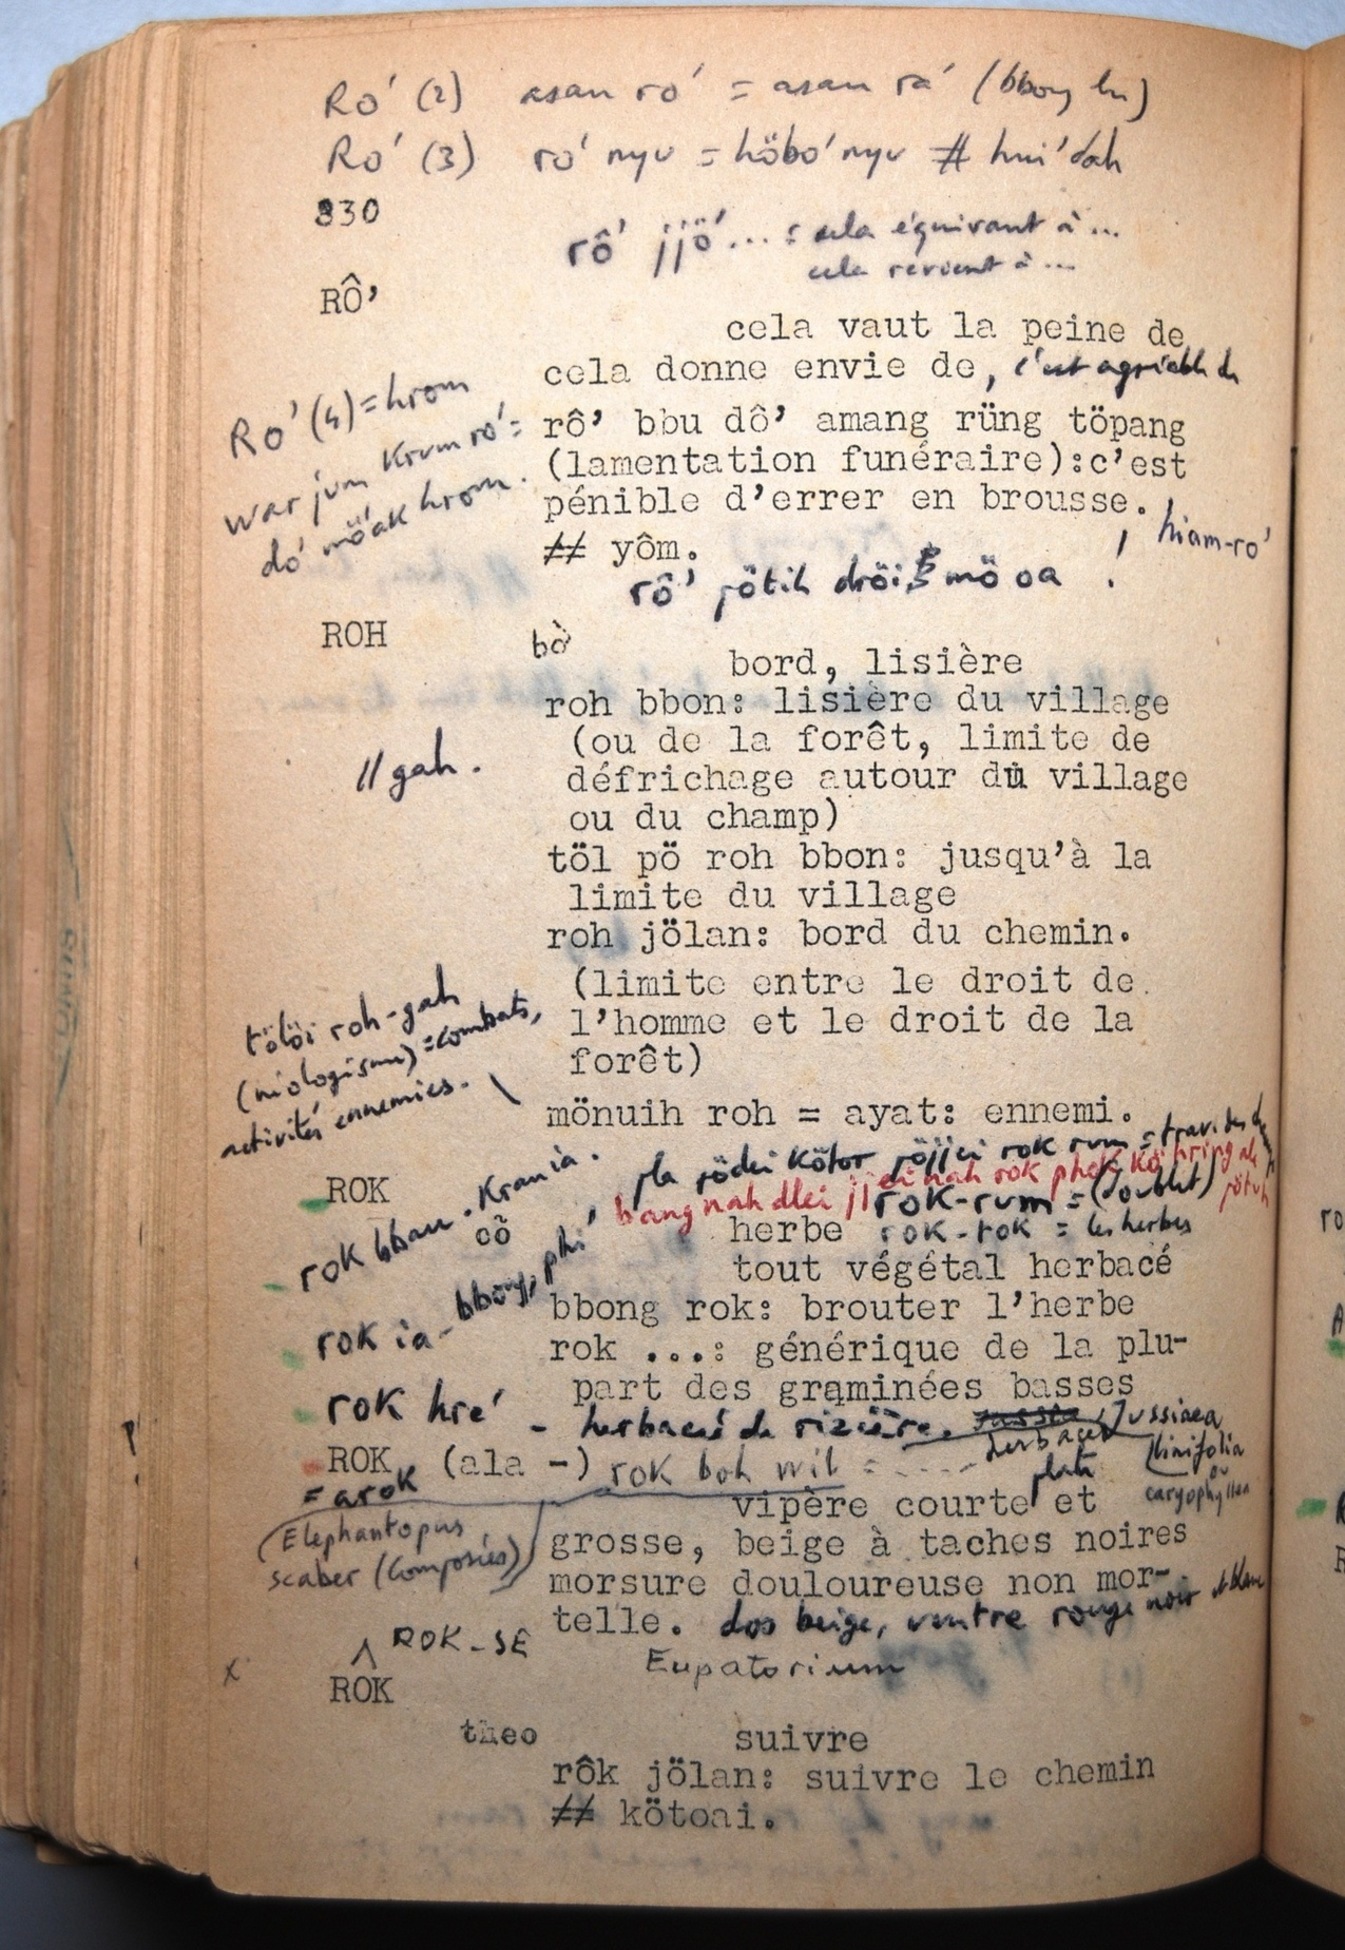 Ro' (2) asan ro' = asan ra' (bbong
Ro' (3) ro' nyu = höbo' nyu # hui' dah
830
rô' jjö' ... : cela équivaut à ...
cela revient à ...
RÔ'
cela vaut la peine de
cela donne envie de, c'est agréable de
Ro' (4) = hrom
war jum Krum ro' =
dó möak hrom.
rô' bbu dô' amang rüng töpang
(lamentation funéraire):c'est
pénible d'errer en brousse.
## yôm.
! hiam-ro'
rô' rötih dröi mö oa !
ROH
bờ
bord, lisière
roh bbon: lisière du village
(ou de la forêt, limite de
// gah.
défrichage autour du village
ou du champ)
töl pö roh bbon: jusqu'à la
limite du village
roh jölan: bord du chemin.
(limite entre le droit de
l'homme et le droit de la
forêt)
tölöi roh-gah
(néologisme) = combats,
activités ennemies.
mönuih roh = ayat: ennemi.
pla rödei kötor röjjei rok rum =
bang nah dlei jjei nah rok phek kö hring
ROK
rok-rum = (doublet)
cõ
herbe rok-rok = les herbes
rok bbau. Krania.
tout végétal herbacé
rok ia - bböng, phi'
bbong rok: brouter l'herbe
rok ...: générique de la plu-
part des graminées basses
rok hre' - herbacé de rizière. Jussiaea
herbacée (linifolia
ou
caryophyllea
ROK (ala -) rok boh wil = ....
= arok
plate
vipère courte et
(Elephantopus
scaber (Composées))
grosse, beige à taches noires
morsure douloureuse non mor-
telle. dos beige, ventre rouge noir et blanc
^ ROK-SE
Eupatorium
x
ROK
theo
suivre
rôk jölan: suivre le chemin
## kötoai.